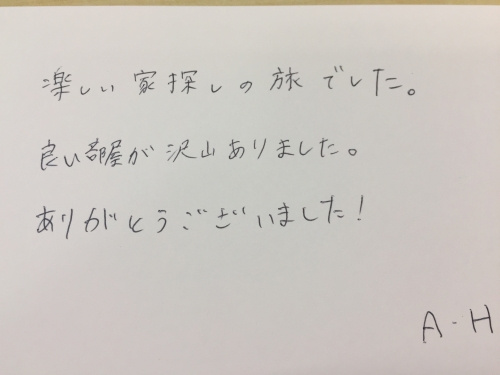 楽しい家探しの旅でした。
良い部屋が沢山ありました。
ありがとうございました!
A-H